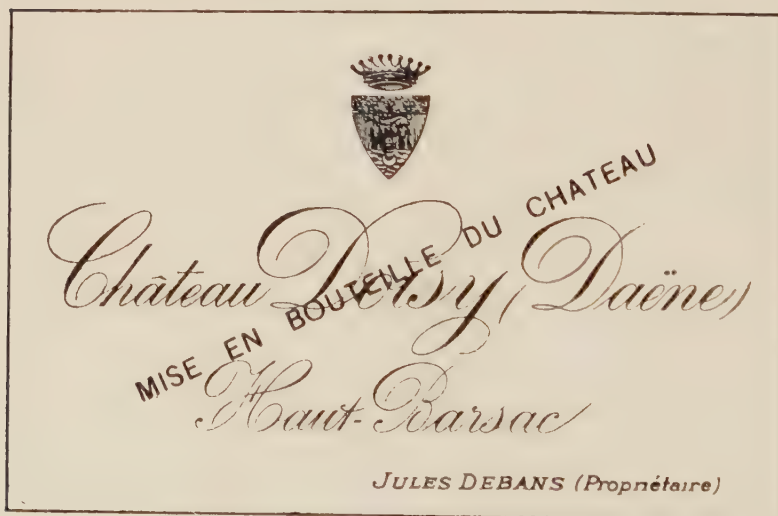 Château Doisy (Daëne)
MISE EN BOUTEILLE DU CHATEAU
Haut-Barsac
JULES DEBANS (Propriétaire)